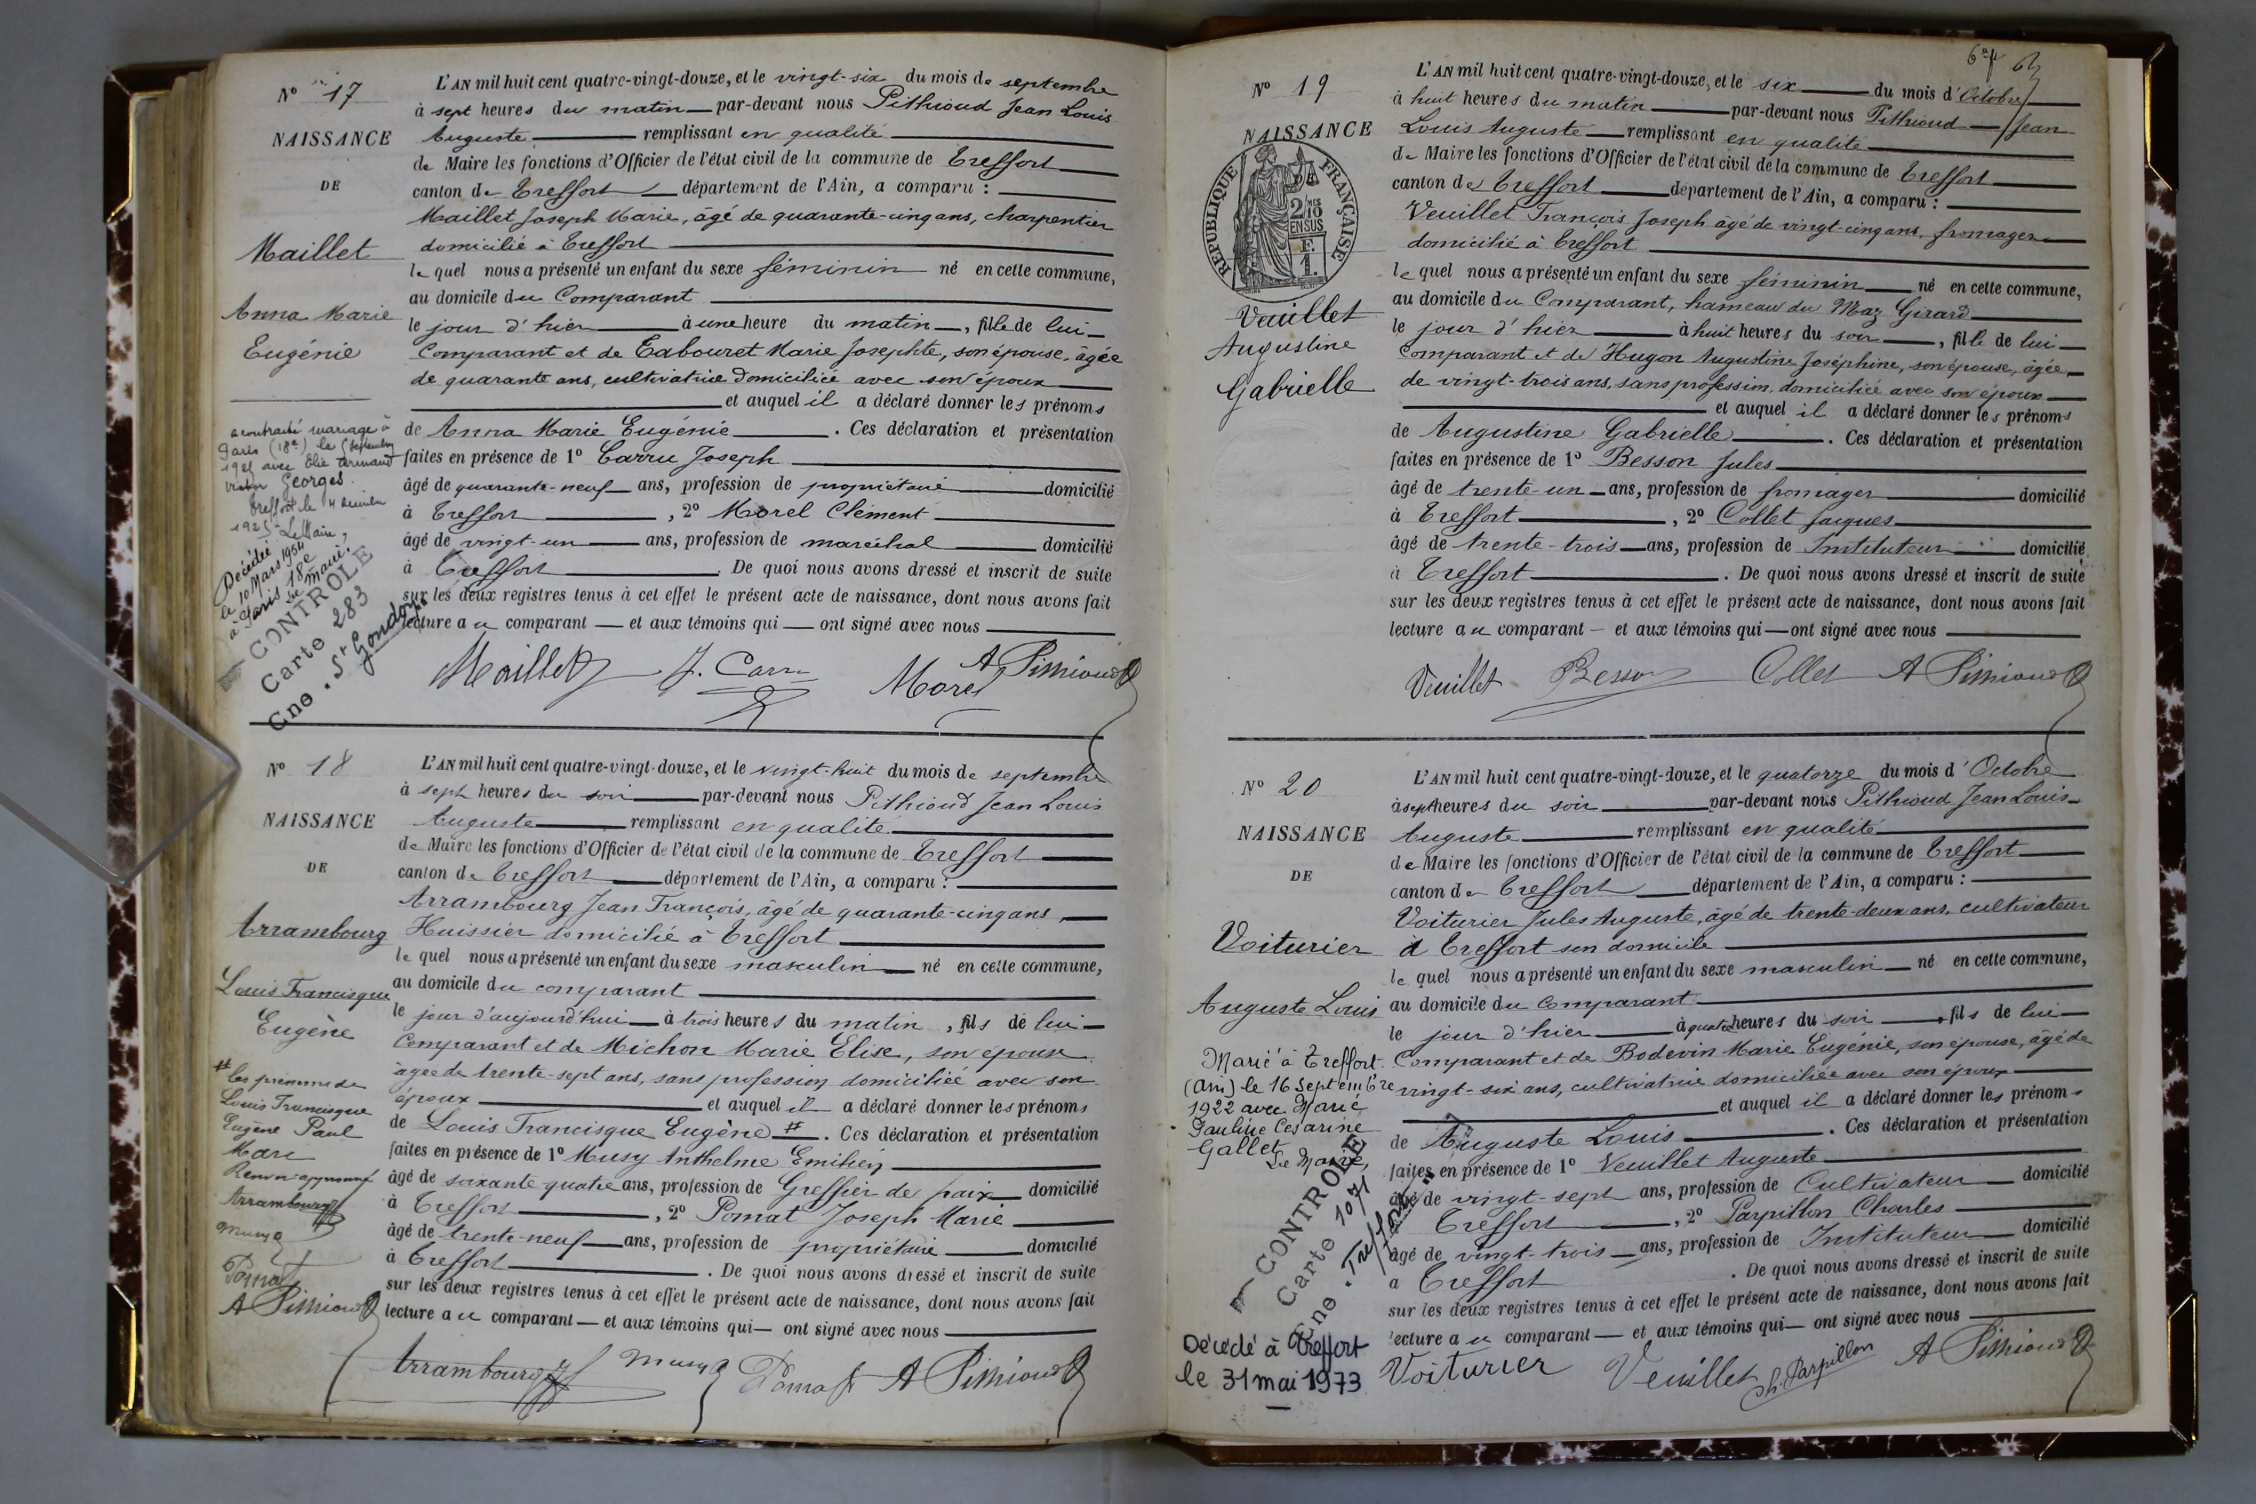 Nº 17
NAISSANCE
DE
Maillet
Anna Marie
Eugénie
a contracté mariage à
Paris (18e) le 5 septembre
1925 avec Elie Armand
Victor Georges.
Treffort le 4 décembre
1925 Le Maire,
Décédée
le 10 Mars 1954
à Paris 18e
Le maire.
CONTROLE
Carte 283
Cne. St Gondon.
L'AN mil huit cent quatre-vingt-douze, et le vingt-six du mois de septembre
à sept heures du matin par-devant nous Pithioud Jean Louis
Auguste remplissant en qualité
de Maire les fonctions d'Officier de l'état civil de la commune de Treffort
canton de Treffort département de l'Ain, a comparu :
Maillet Joseph Marie, âgé de quarante-cinq ans, charpentier
domicilié à Treffort
le quel nous a présenté un enfant du sexe féminin né en cette commune,
au domicile du Comparant
le jour d'hier à une heure du matin, fille de lui
Comparant et de Tabouret Marie Josephte, son épouse, âgée
de quarante ans, cultivatrice domiciliée avec son époux
et auquel il a déclaré donner les prénoms
de Anna Marie Eugénie. Ces déclaration et présentation
faites en présence de 1º Carru Joseph
âgé de quarante-neuf ans, profession de propriétaire domicilié
à Treffort, 2º Morel Clément
âgé de vingt-un ans, profession de maréchal domicilié
à Treffort. De quoi nous avons dressé et inscrit de suite
sur les deux registres tenus à cet effet le présent acte de naissance, dont nous avons fait
lecture au comparant et aux témoins qui ont signé avec nous
Maillet J. Carru Morel A Pithioud
Nº 18
NAISSANCE
DE
Arrambourg
Louis Francisque
Eugène
# les prénoms de
Louis Francisque
Eugène Paul
Marc
Renvoi approuvé
Arrambourg
Musy
Pomat
A Pithioud
L'AN mil huit cent quatre-vingt-douze, et le vingt-huit du mois de septembre
à sept heures du soir par-devant nous Pithioud Jean Louis
Auguste remplissant en qualité
de Maire les fonctions d'Officier de l'état civil de la commune de Treffort
canton de Treffort département de l'Ain, a comparu :
Arrambourg Jean François, âgé de quarante-cinq ans,
Huissier domicilié à Treffort
le quel nous a présenté un enfant du sexe masculin né en cette commune,
au domicile du comparant
le jour d'aujourd'hui à trois heures du matin, fils de lui
Comparant et de Michon Marie Elise, son épouse
âgée de trente-sept ans, sans profession domiciliée avec son
époux et auquel il a déclaré donner les prénoms
de Louis Francisque Eugène #. Ces déclaration et présentation
faites en présence de 1º Musy Anthelme Emilien
âgé de soixante quatre ans, profession de Greffier de paix domicilié
à Treffort, 2º Pomat Joseph Marie
âgé de trente-neuf ans, profession de propriétaire domicilié
à Treffort. De quoi nous avons dressé et inscrit de suite
sur les deux registres tenus à cet effet le présent acte de naissance, dont nous avons fait
lecture au comparant et aux témoins qui ont signé avec nous
Arrambourg Musy Pomat A Pithioud
Nº 19
NAISSANCE
RÉPUBLIQUE FRANÇAISE
2/10MES
EN SUS
F.
1.
Veuillet
Augustine
Gabrielle
L'AN mil huit cent quatre-vingt-douze, et le six du mois d'Octobre
à huit heures du matin par-devant nous Pithioud Jean
Louis Auguste remplissant en qualité
de Maire les fonctions d'Officier de l'état civil de la commune de Treffort
canton de Treffort département de l'Ain, a comparu :
Veuillet François Joseph âgé de vingt-cinq ans, fromager
domicilié à Treffort
le quel nous a présenté un enfant du sexe féminin né en cette commune,
au domicile du Comparant, hameau du Maz Girard
le jour d'hier à huit heures du soir, fille de lui
Comparant et de Hugon Augustine Joséphine, son épouse, âgée
de vingt-trois ans, sans profession, domiciliée avec son époux
et auquel il a déclaré donner les prénoms
de Augustine Gabrielle. Ces déclaration et présentation
faites en présence de 1º Besson Jules
âgé de trente-un ans, profession de fromager domicilié
à Treffort, 2º Collet Jacques
âgé de trente-trois ans, profession de Instituteur domicilié
à Treffort. De quoi nous avons dressé et inscrit de suite
sur les deux registres tenus à cet effet le présent acte de naissance, dont nous avons fait
lecture au comparant et aux témoins qui ont signé avec nous
Veuillet Besson Collet A Pithioud
Nº 20
NAISSANCE
DE
Voiturier
Auguste Louis
Marié à Treffort
(Ain) le 16 Septembre
1922 avec Marie
Pauline Césarine
Gallet
Le Maire,
CONTROLE
Carte 1071
Cne. Treffort
Décédé à Treffort
le 31 mai 1973
L'AN mil huit cent quatre-vingt-douze, et le quatorze du mois d'Octobre
à sept heures du soir par-devant nous Pithioud Jean Louis
Auguste remplissant en qualité
de Maire les fonctions d'Officier de l'état civil de la commune de Treffort
canton de Treffort département de l'Ain, a comparu :
Voiturier Jules Auguste, âgé de trente-deux ans, cultivateur
à Treffort son domicile
le quel nous a présenté un enfant du sexe masculin né en cette commune,
au domicile du Comparant
le jour d'hier à quatre heures du soir, fils de lui
Comparant et de Bodevin Marie Eugénie, son épouse, âgé de
vingt-six ans, cultivatrice domiciliée avec son époux
et auquel il a déclaré donner les prénoms
de Auguste Louis. Ces déclaration et présentation
faites en présence de 1º Veuillet Auguste
âgé de vingt-sept ans, profession de Cultivateur domicilié
Treffort, 2º Parpillon Charles
âgé de vingt-trois ans, profession de Instituteur domicilié
à Treffort. De quoi nous avons dressé et inscrit de suite
sur les deux registres tenus à cet effet le présent acte de naissance, dont nous avons fait
lecture au comparant et aux témoins qui ont signé avec nous
Voiturier Veuillet Ch. Parpillon A Pithioud